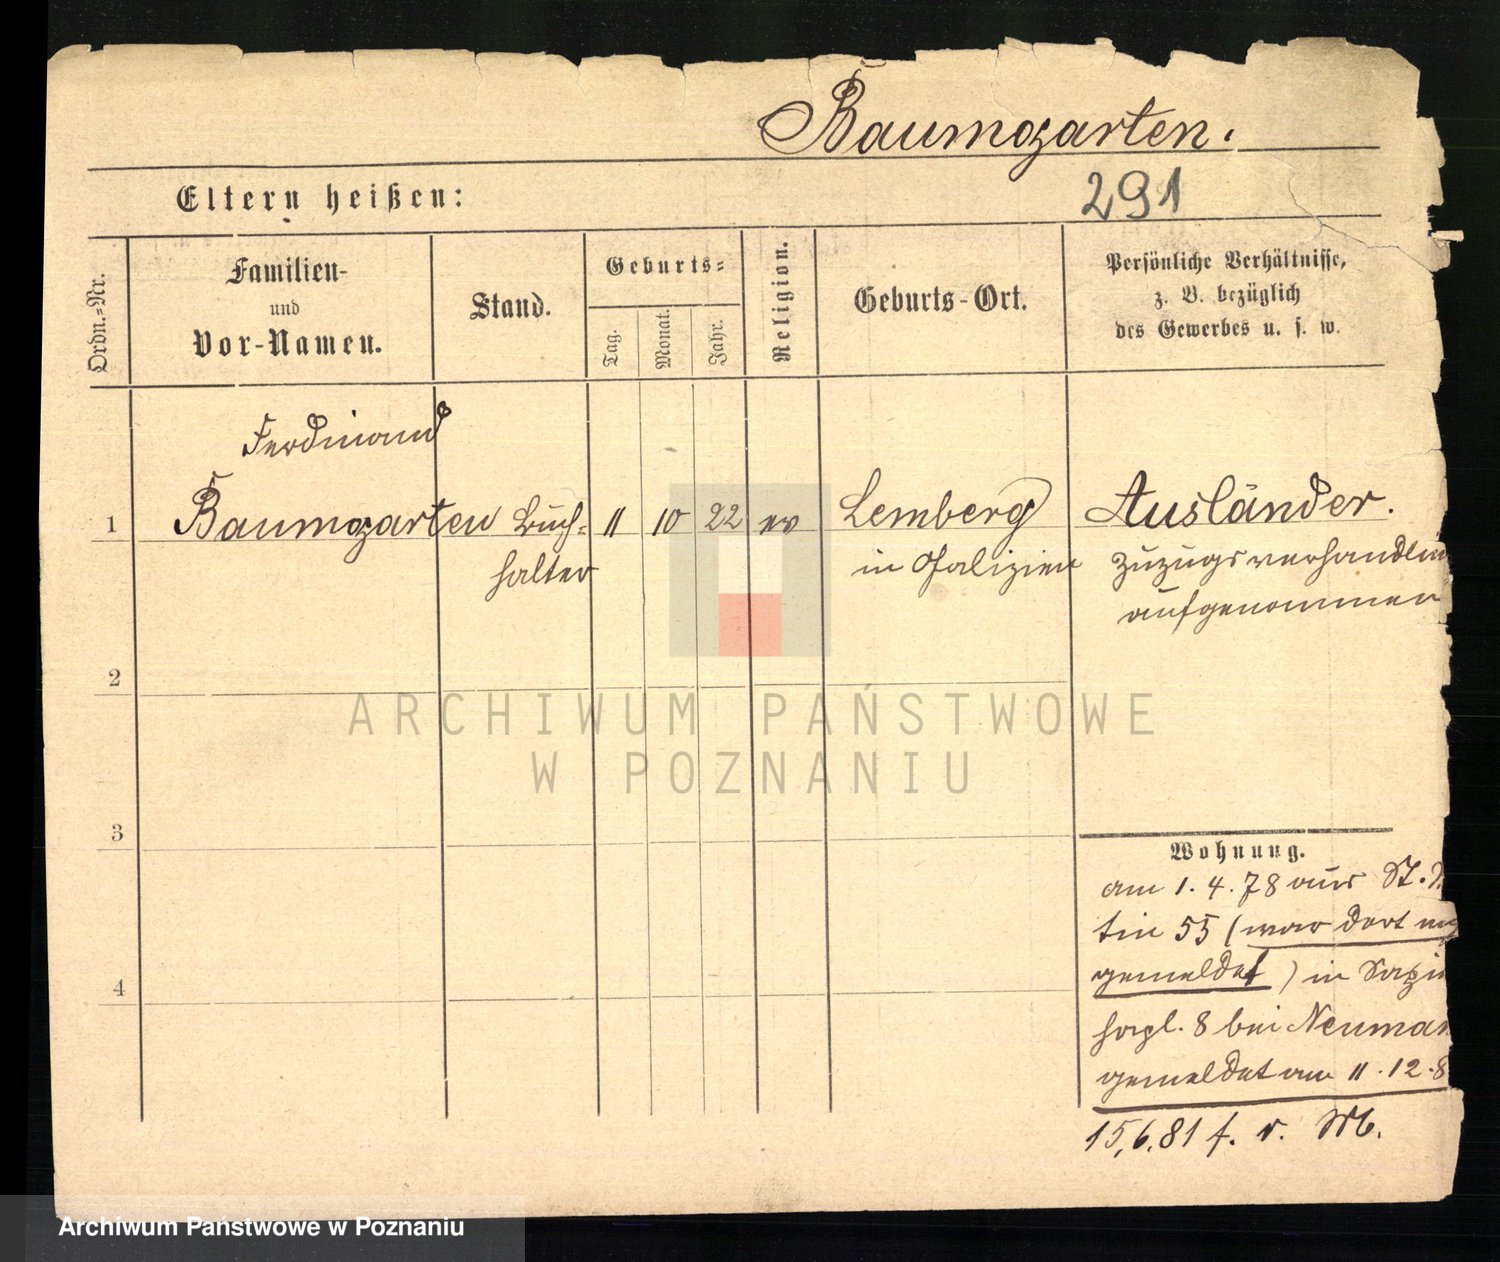 Baumgarten.
291
Eltern heißen:
Ordn.-Nr.
Familien-
und
Vor-Namen.
Stand.
Geburts-
Tag.
Monat.
Jahr.
Religion.
Geburts-Ort.
Persönliche Verhältnisse,
z. B. bezüglich
des Gewerbes u. s. w.
Ferdinand
1 Baumgarten Buch- 11 10 22 ev Lemberg Ausländer.
halter in Galizien Zuzugsverhandlun
aufgenommen
2
3
4
Wohnung.
am 1.4.78 aus St.
tin 55 (war dort
gemeldet) in
8 bei Neuman
gemeldet am 11.12.8
15,6.81 f. v.
ARCHIWUM PAŃSTWOWE
W POZNANIU
Archiwum Państwowe w Poznaniu